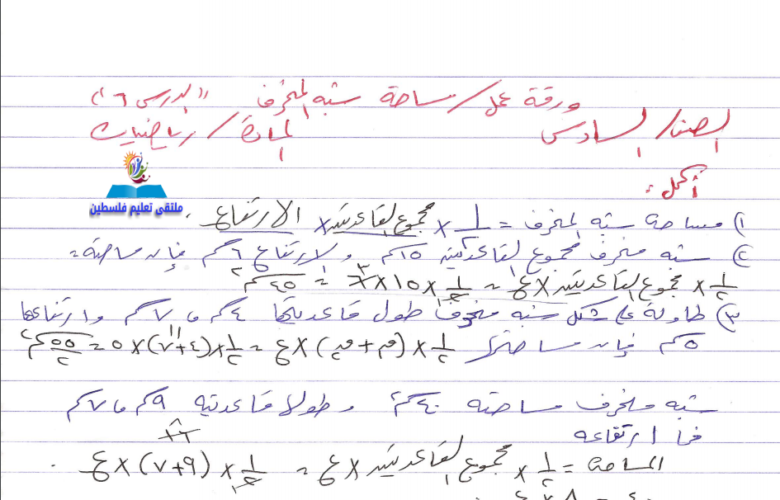 ورقة عمل / مساحة شبه المنحرف "الدرس ٦"
الصف / السادس المادة / رياضيات
أكمل:
ملتقى تعليم فلسطين
١) مساحة شبه المنحرف = ١/٢ × مجموع القاعدتين × الارتفاع.
٢) شبه منحرف مجموع القاعدتين ١٥سم والارتفاع ٦سم فإن مساحته =
١/٢ × مجموع القاعدتين × ع = ١/٢ × ١٥ × ٦ ٣ = ٤٥سم٢
٣) طاولة على شكل شبه منحرف طول قاعدتيها ٤سم و ٧سم وارتفاعها
٥سم فإن مساحتها ١/٢ × (ق١ + ق٢) × ع = ١/٢ × (٤+٧) ١١ × ٥ = ٥٥/٢ سم٢
شبه منحرف مساحته ٤٠سم٢ وطولا قاعدتيه ٩سم و ٧سم
فما ارتفاعه
المساحة = ١/٢ × مجموع القاعدتين × ع = ١/٢ × (٩+٧) ١٦ ٨ × ع
٤٠ = ٨ × ع